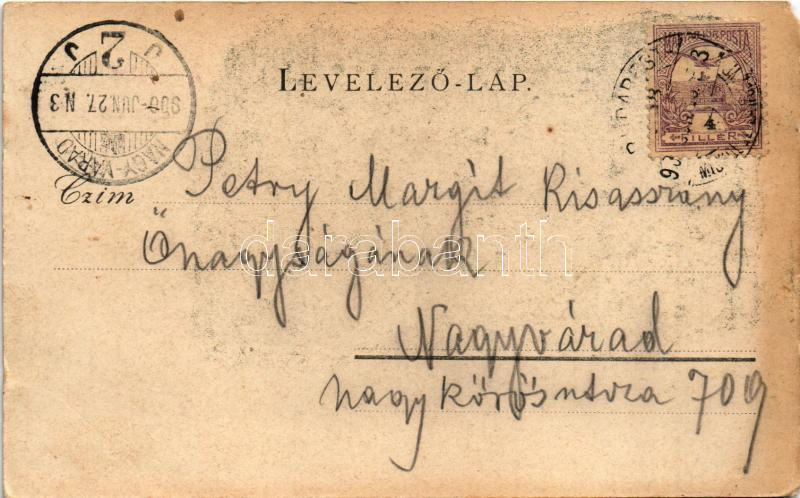 LEVELEZŐ-LAP.
NAGY-VÁRAD
900 JUN. 27. N 3
2
MAGYAR KIR. POSTA
4
FILLÉR
BUDAPEST
Czim
Petry Margit Kisasszony
Őnagyságának
Nagyvárad
nagy körösutcza 709
darabanth